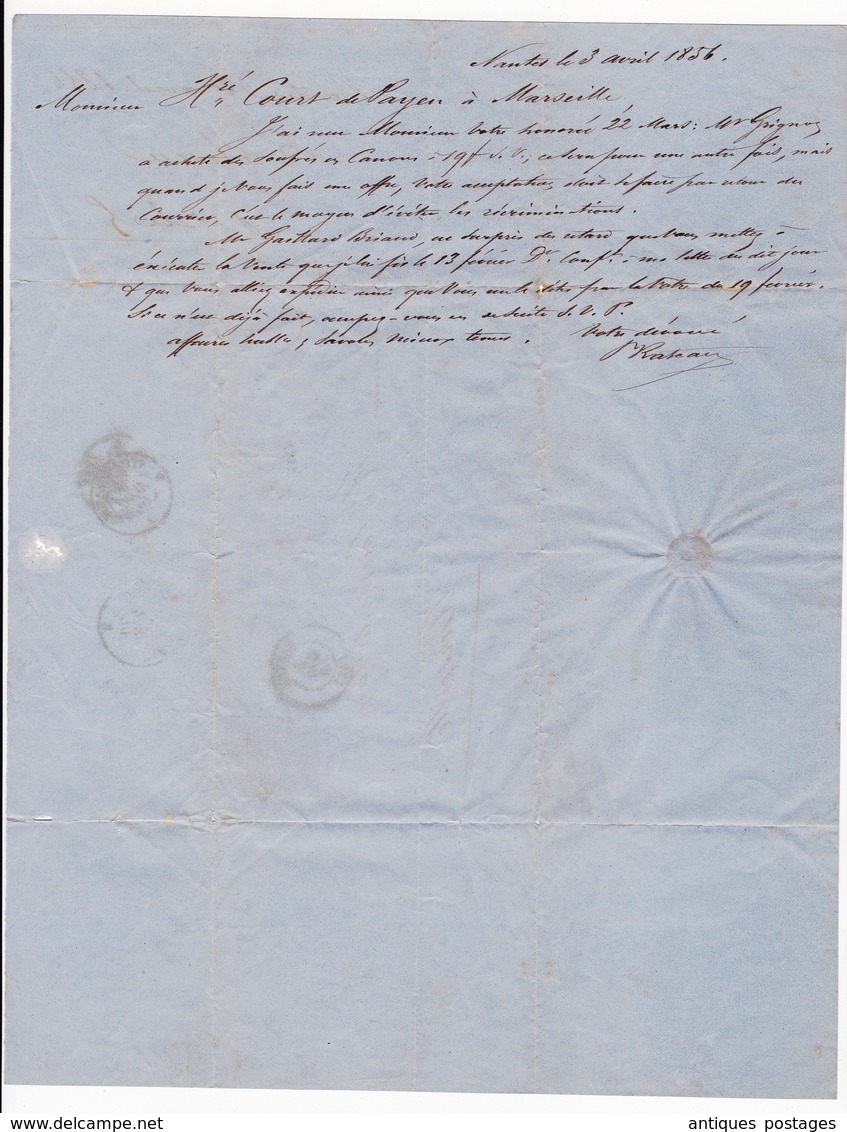 Nantes le 3 avril 1856.
Monsieur Hré Court de Payen à Marseille
J'ai reçu Monsieur votre honorée 22 Mars: Mr Grignon
a acheté des Soufres en Canons à 19f S.V.; ce sera pour une autre fois, mais
quand je vous fais une offre, votre acceptation doit se faire par retour du
Courrier, c'est le moyen d'éviter les récriminations.
Mr Gaillard Briand, est surpris du retard que vous mettez à
exécuter la vente que je lui fis le 13 février Dr Conft à ma lettre du dit jour
& que vous alliez expédier ainsi que vous me le dites par la vôtre du 19 février.
Si ce n'est déjà fait, occupez-vous en de suite S.V.P.
affaires nulles; Savons mieux tenus. Votre dévoué
Rateau
delcampe.net
antiques postages